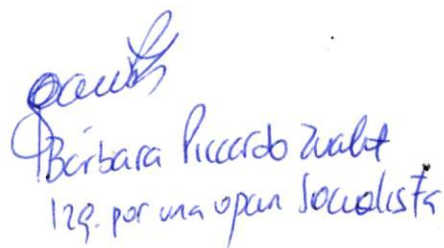 Bárbara Piccardo
Izq. por una opcn Socialista